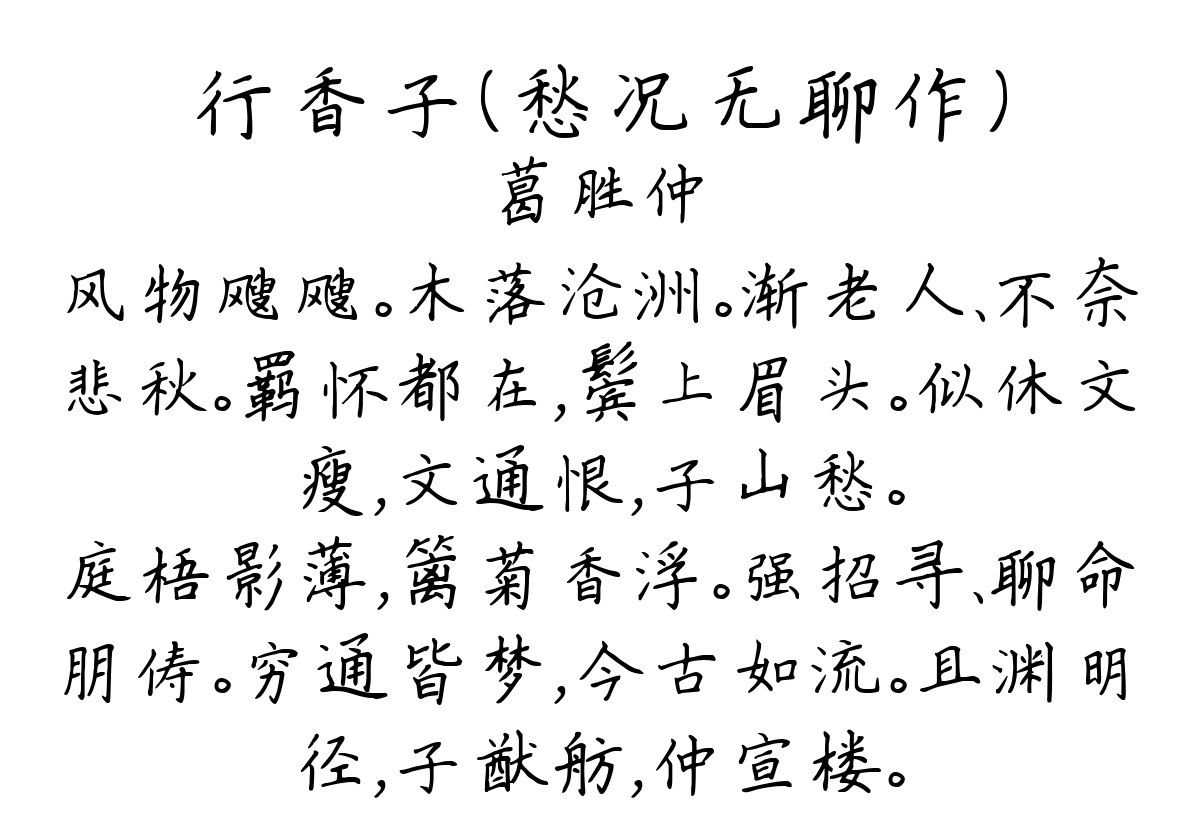 行香子(愁况无聊作)
葛胜仲
风物飕飕。木落沧洲。渐老人、不奈
悲秋。羁怀都在,鬓上眉头。似休文
瘦,文通恨,子山愁。
庭梧影薄,篱菊香浮。强招寻、聊命
朋俦。穷通皆梦,今古如流。且渊明
径,子猷舫,仲宣楼。